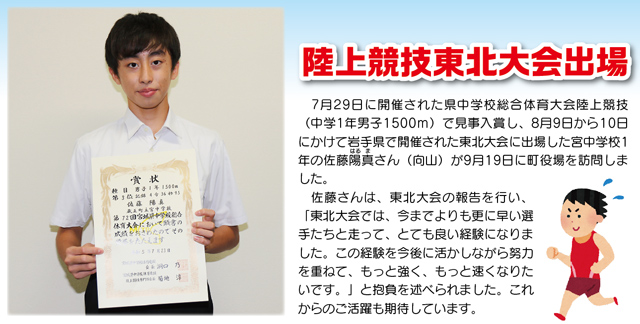 陸上競技東北大会出場
7月29日に開催された県中学校総合体育大会陸上競技
(中学1年男子1500m)で見事入賞し、8月9日から10日
にかけて岩手県で開催された東北大会に出場した宮中学校1
はる ま
年の佐藤陽真さん(向山)が9月19日に町役場を訪問しま
した。
佐藤さんは、東北大会の報告を行い、
「東北大会では、今までよりも更に早い選
手たちと走って、とても良い経験になりま
した。この経験を今後に活かしながら努力
を重ねて、もっと強く、もっと速くなりた
いです。」と抱負を述べられました。これ
からのご活躍も期待しています。
賞状
佐藤 陽真